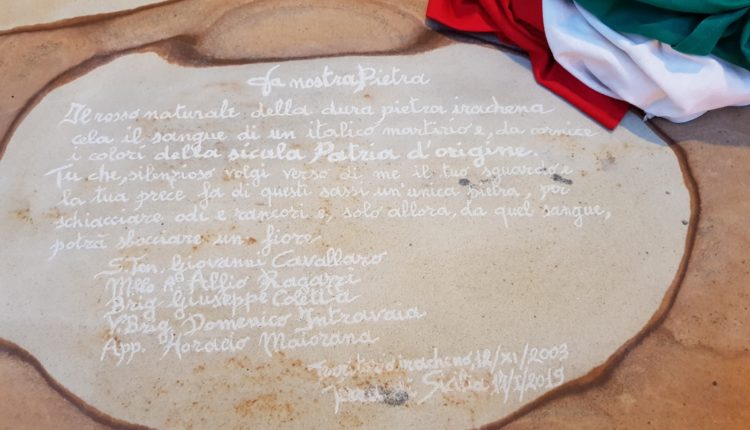 La nostra Pietra
Il rosso naturale della dura pietra irachena
cela il sangue di un italico martirio e, da cornice
i colori della sicula Patria d'origine.
Tu che, silenzioso volgi verso di me il tuo sguardo e
la tua prece, fa di questi sassi un'unica pietra, per
schiacciare odi e rancori e, solo allora, da quel sangue,
potrà sbocciare un fiore
S.Ten. Giovanni Cavallaro
M.llo Alfio Ragazzi
Brig Giuseppe Coletta
V.Brig. Domenico Intravaia
App. Horacio Maiorana
Territorio iracheno, 12/XI/2003
di Sicilia 2019